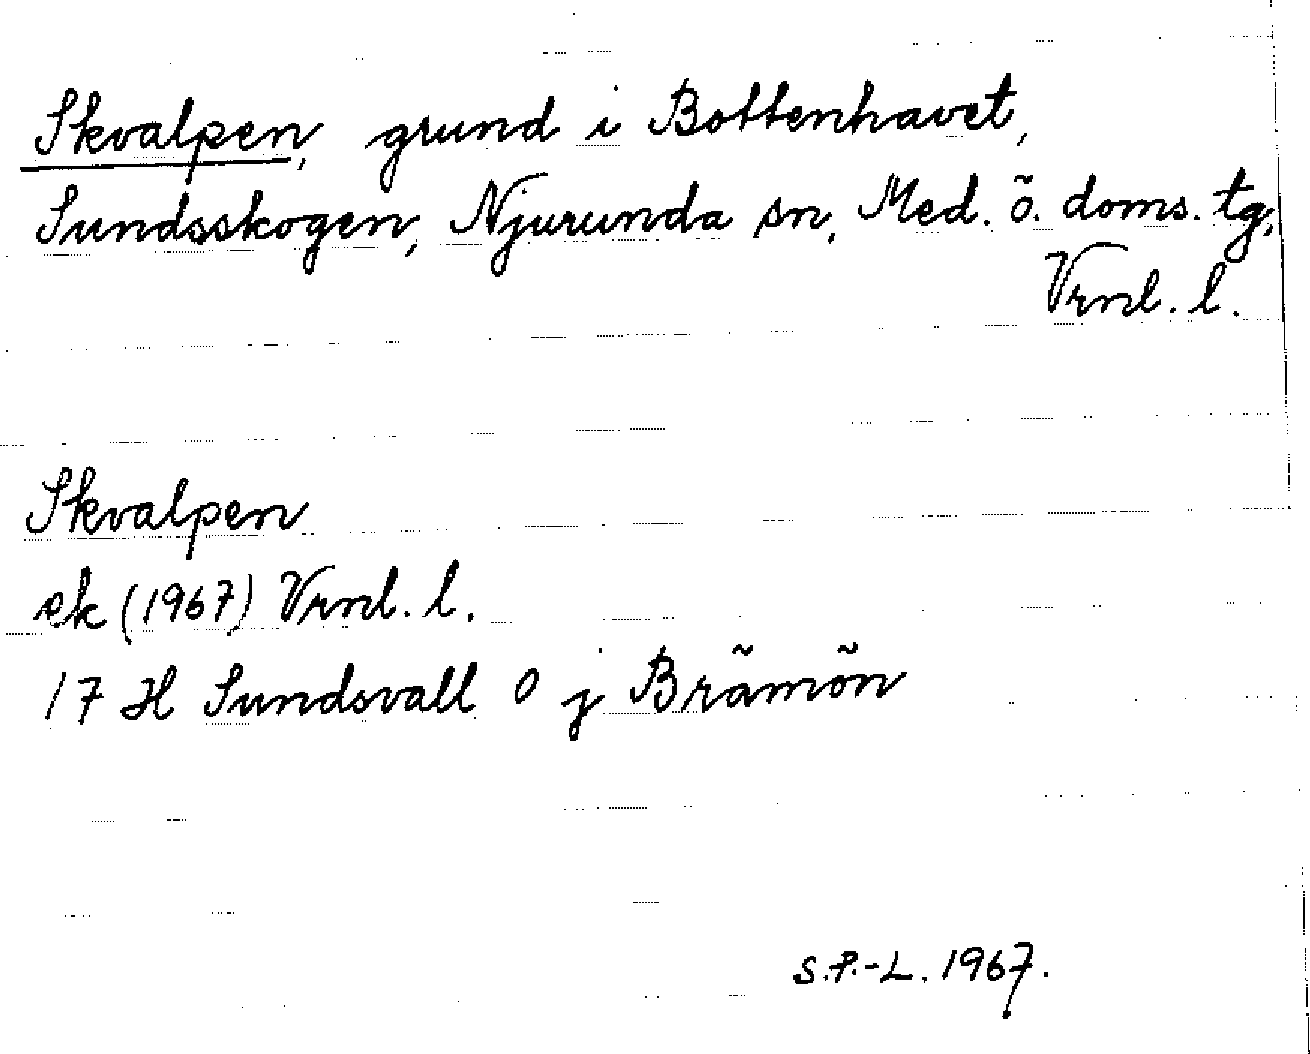 Skvalpen, grund i Bottenhavet,
Sundsskogen, Njurunda sn, Med. ö. doms. tg,
Vrnl. l.
Skvalpen
ek (1967) Vrnl. l.
17 H Sundsvall 0 j Brämön
S.P.-L. 1967.